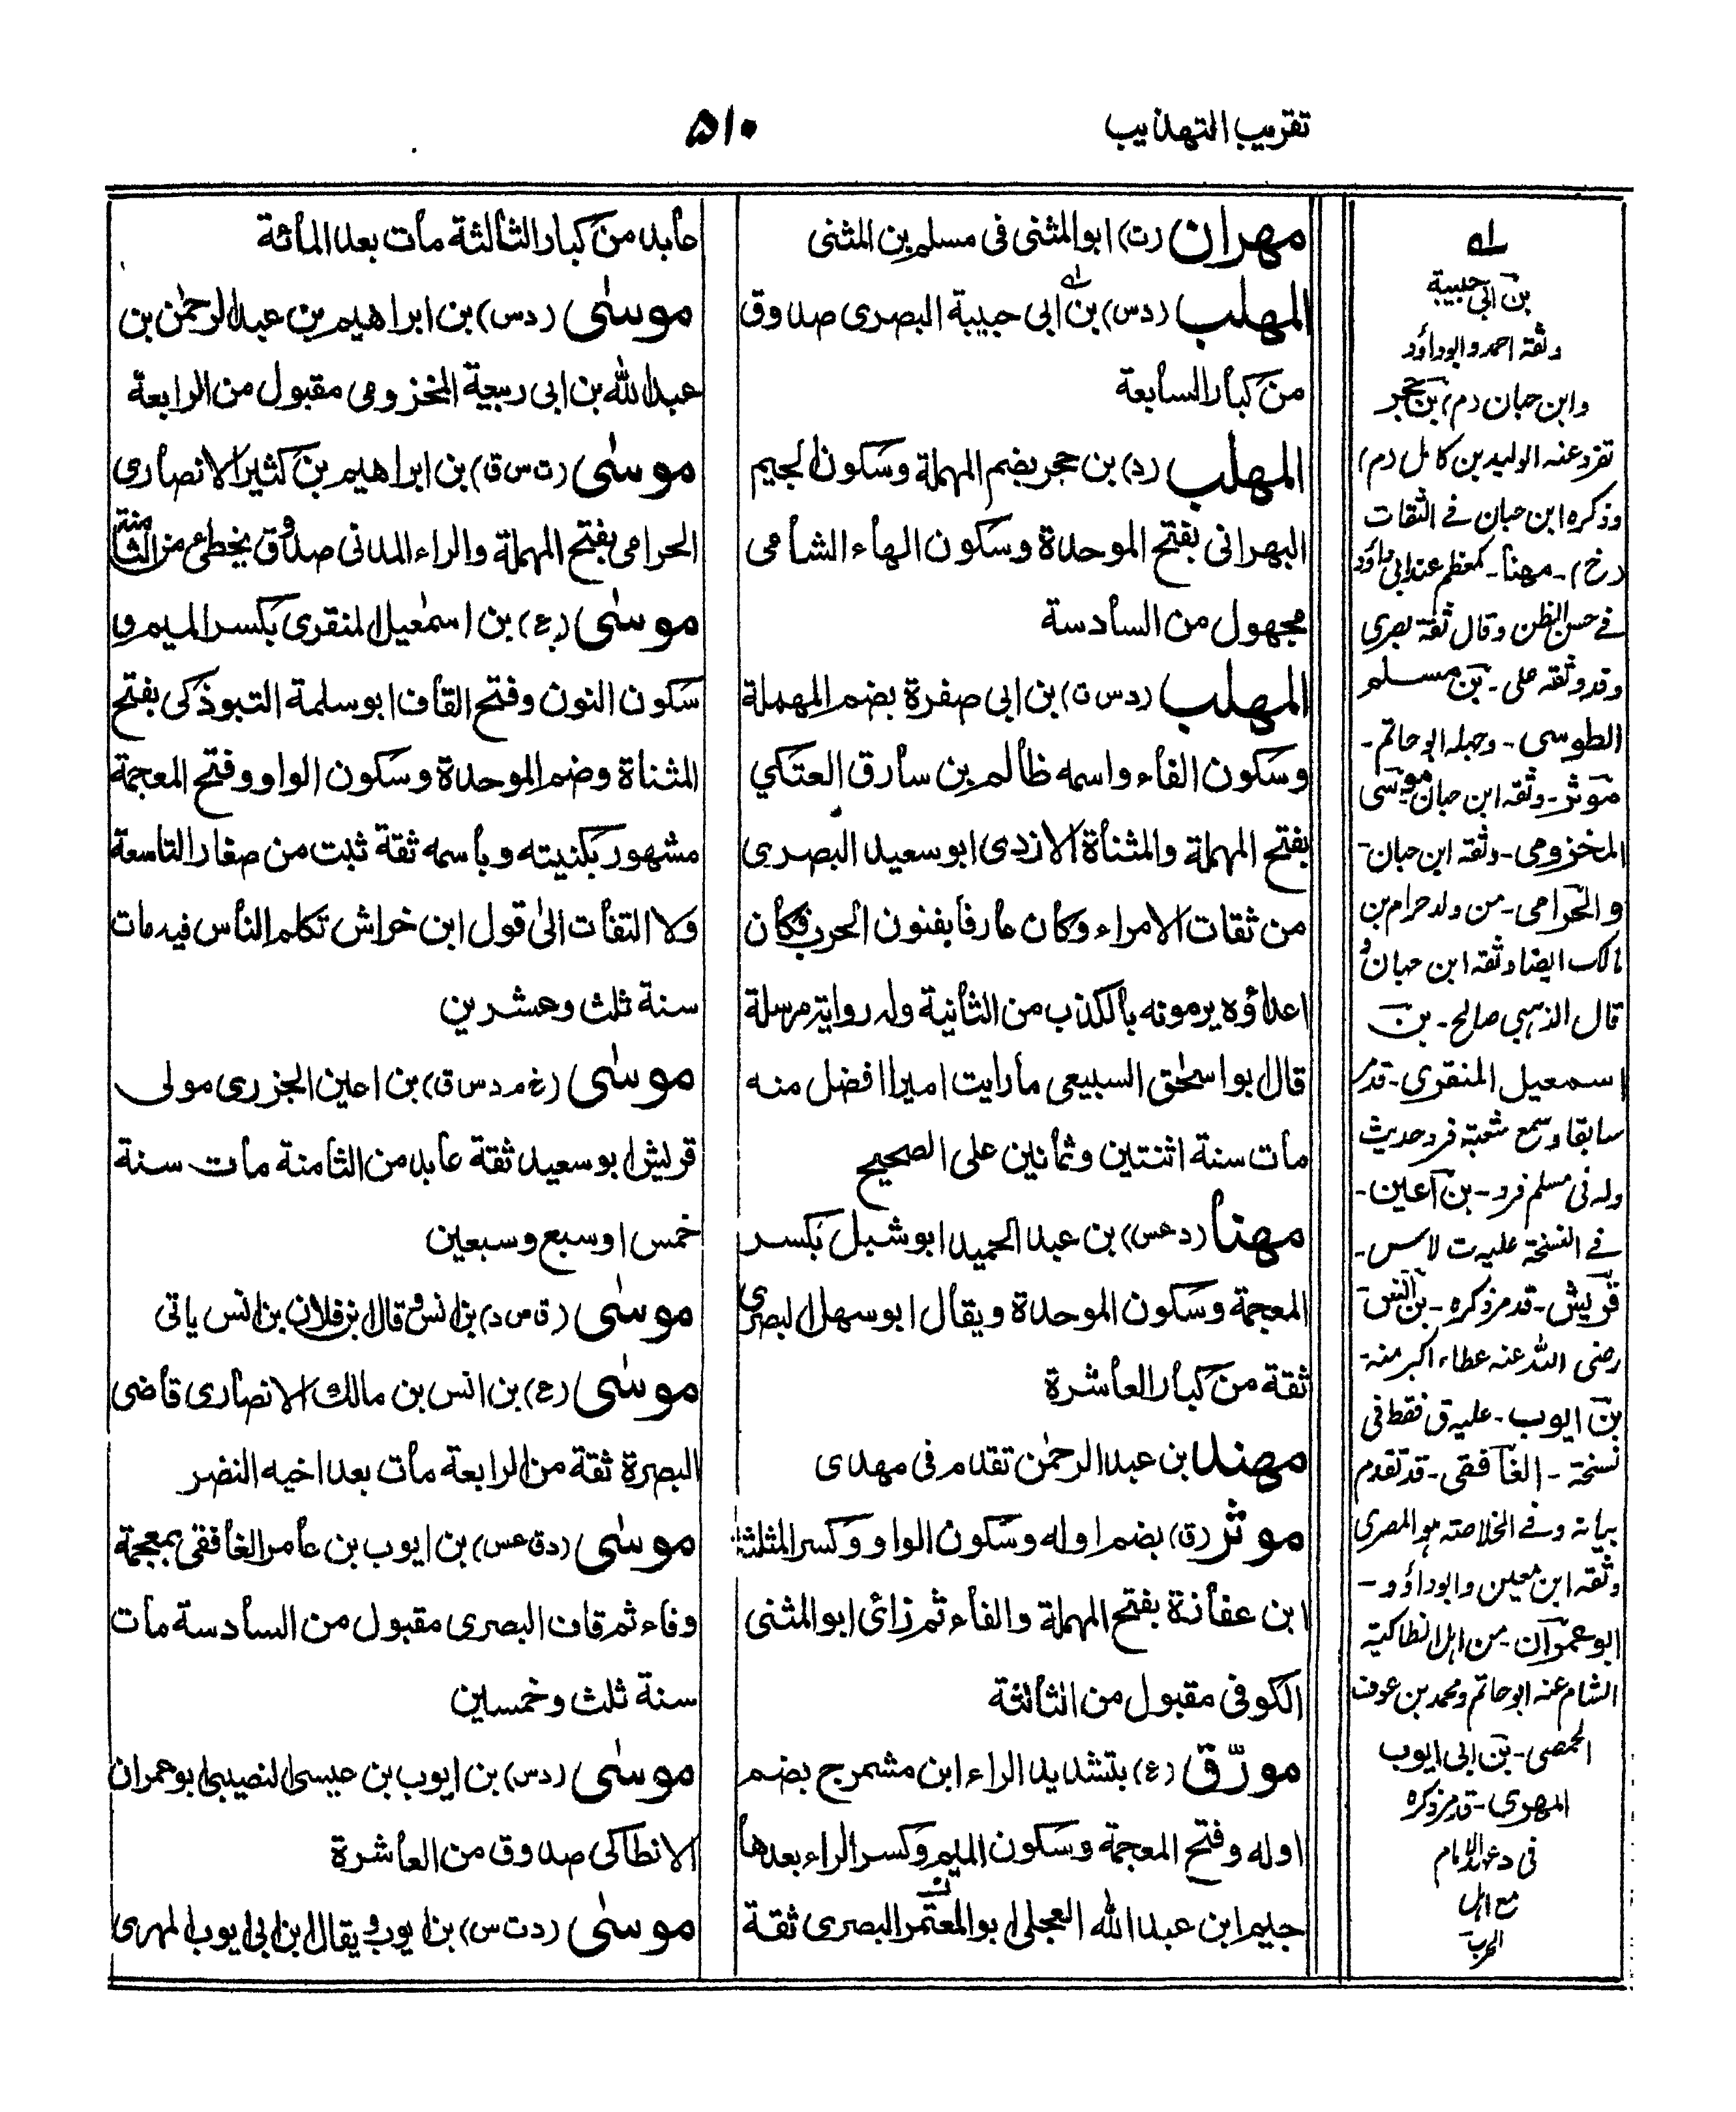 تقريب التهذيب
٥١٠
مهران (ت) ابو المثنى فى مسلم بن المثنى
المهلب (دس) بن ابى حبيبة البصرى صدوق
من كبار السابعة
المهلب (د) بن حجر بضم المهملة وسكون الجيم
البهرانى بفتح الموحدة وسكون الهاء الشامى
مجهول من السادسة
المهلب (دس ت) بن ابى صفرة بضم المهملة
وسكون الفاء واسمه ظالم بن سارق العتكي
بفتح المهملة والمثناة الازدى ابو سعيد البصرى
من ثقات الامراء وكان عارفا بفنون الحرب فكان
اعداؤه يرمونه بالكذب من الثانية وله رواية مرسلة
قال ابو اسحٰق السبيعى ما رايت اميرا افضل منه
مات سنة اثنتين وثمانين على الصحيح
مهنا (دعس) بن عبد الحميد ابو شبل بكسر
المعجمة وسكون الموحدة ويقال ابو سهل البصرى
ثقة من كبار العاشرة
مهند بن عبد الرحمٰن تقدم فى مهدى
موثر (ق) بضم اوله وسكون الواو وكسر المثلثة
ابن عفازة بفتح المهملة والفاء ثم زائ ابو المثنى
الكوفى مقبول من الثالثة
مورّق (ع) بتشديد الراء ابن مشمرج بضم
اوله وفتح المعجمة وسكون الميم وكسر الراء بعدها
جيم ابن عبد الله العجلى ابو المعتمر البصرى ثقة
عابد من كبار الثالثة مات بعد المائة
موسٰى (دس) بن ابراهيم بن عبد الرحمٰن بن
عبد الله بن ابى ربيعة المخزومى مقبول من الرابعة
موسٰى (ت س ق) بن ابراهيم بن كثير الانصارى
الحرامى بفتح المهملة والراء المدنى صدوق يخطئ من الثامنة
موسٰى (ع) بن اسمٰعيل المنقرى بكسر الميم و
سكون النون وفتح القاف ابو سلمة التبوذكى بفتح
المثناة وضم الموحدة وسكون الواو وفتح المعجمة
مشهور بكنيته وباسمه ثقة ثبت من صغار التاسعة
ولا التفات الىٰ قول ابن خراش تكلم الناس فيه مات
سنة ثلث وعشرين
موسٰى (خ م د س ق) بن اعين الجزرى مولى
قريش ابو سعيد ثقة عابد من الثامنة مات سنة
خمس او سبع وسبعين
موسٰى (ق ص د) بن انس وقال ابن فلان بن انس ياتى
موسٰى (ع) بن انس بن مالك الانصارى قاضى
البصرة ثقة من الرابعة مات بعد اخيه النضر
موسٰى (دق عس) بن ايوب بن عامر الغافقى بمعجمة
وفاء ثم قاف البصرى مقبول من السادسة مات
سنة ثلث وخمسين
موسٰى (دس) بن ايوب بن عيسى النصيبى ابو عمران
الانطاكى صدوق من العاشرة
موسٰى (دت س) بن ايوب ويقال ابن ابى ايوب المهرى
له
بن ابى حبيبة
وثقه احمد وابو داؤد
وابن حبان (م) بن حجر
تفرد عنه الوليد بن كامل (م)
وذكره ابن حبان فے الثقات
(خ) - مهنا - كمعظم عند ابى داؤد
فے حسن الظن وقال ثقة بصرى
وقد وثقه على - بن مسلم
الطوسى - وجهله ابو حاتم -
موثر - وثقه ابن حبان موسى
المخزومى - وثقه ابن حبان -
والحرامى - من ولد حرام بن
مالك ايضا وثقه ابن حبان و
قال الذهبى صالح - بن
اسمعيل المنقرى - قدم
سابقا وسمع شعبة فرد حديث
وله فى مسلم فرد - بن اعين -
فے النسخة عليه ت لا س -
قريش - قد مر ذكره - بن انس
رضى الله عنه عطاء اكبر منه -
بن ايوب - عليه ق فقط فى
نسخة - الغافقى - قد تقدم
بيانه وفے الخلاصة هو المصرى
وثقه ابن معين وابو داؤد -
ابو عمران - من اهل انطاكية
الشام عنه ابو حاتم ومحمد بن عوف
الحمصى - بن ابى ايوب
المهرى - قد مر ذكره
فى
مع اهل
الحرب